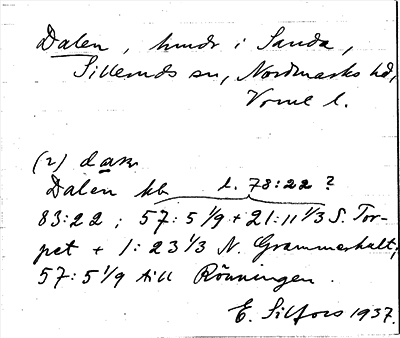 Dalen, hmdr i Sanda,
Silleruds sn, Nordmarks hd,
Vrml l.
(2) daɴ
Dalen kb l. 78:22 ?
83:22 ; 57:5 1/9 + 21:11 1/3 S. Tor-
pet + 1:23 1/3 N. Grammerhult;
57:5 1/9 till Rönningen.
E. Silfors 1937.